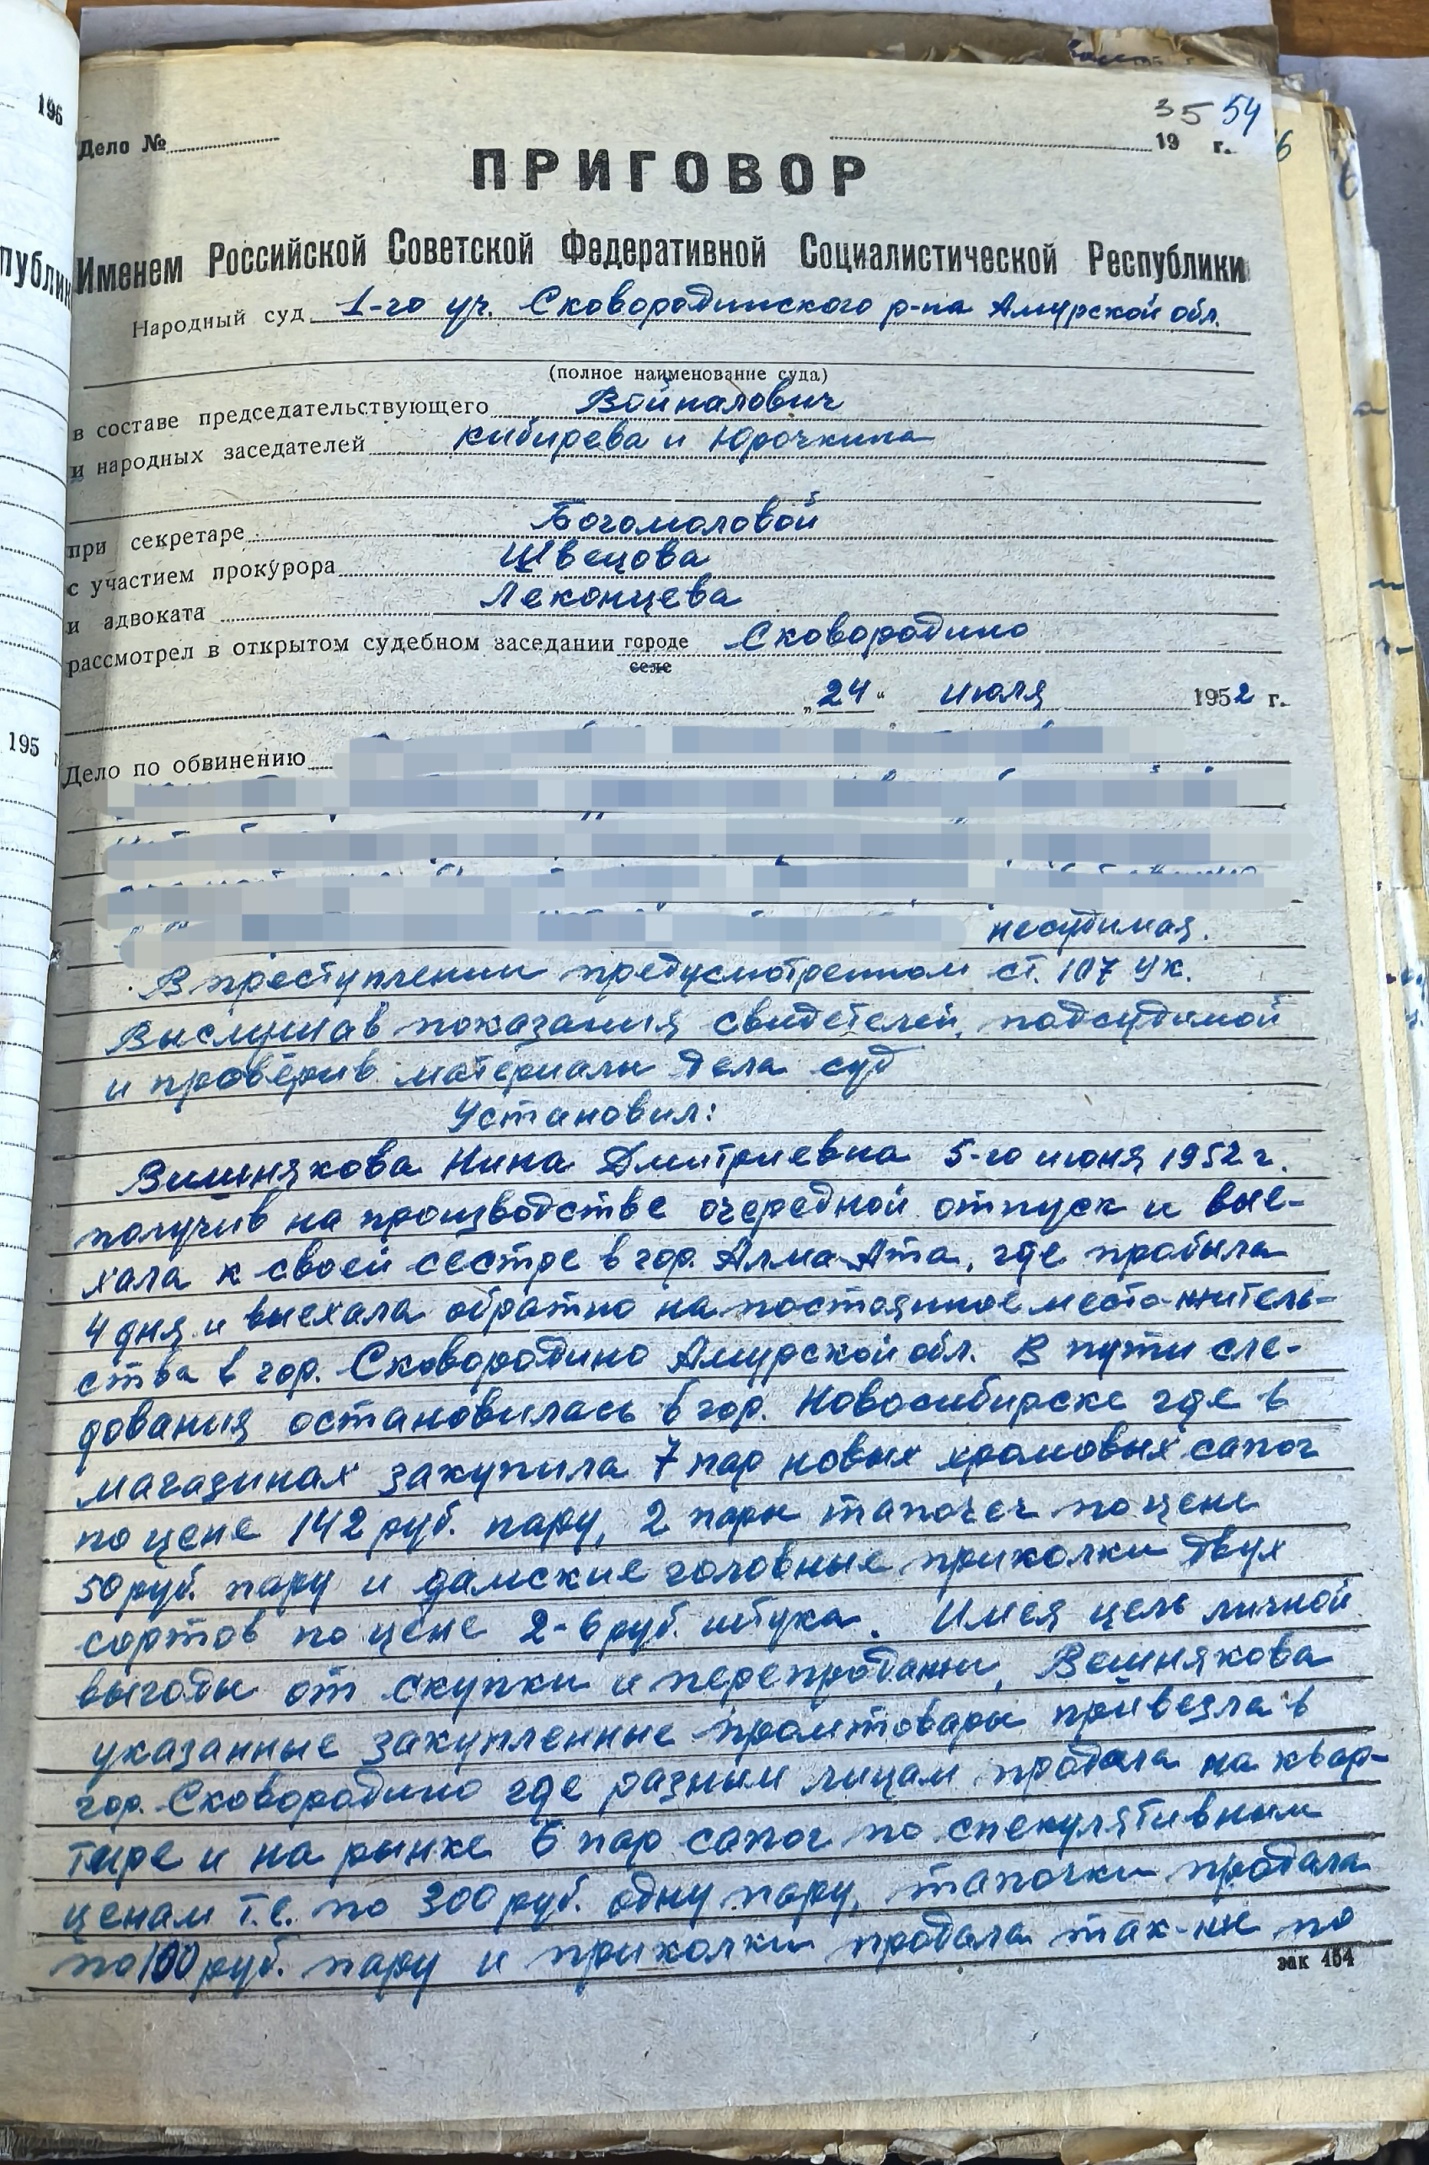 35 54
Дело № 19 г.
ПРИГОВОР
Именем Российской Советской Федеративной Социалистической Республики
Народный суд 1-го уч. Сковородинского р-на Амурской обл.
(полное наименование суда)
в составе председательствующего Войналович
и народных заседателей Кибирева и Юрочкина
при секретаре Богомоловой
с участием прокурора Швецова
и адвоката Леконцева
рассмотрел в открытом судебном заседании городе Сковородино
селе
„24" июля 1952 г.
Дело по обвинению
несудимая.
В преступлении предусмотренном ст. 107 УК.
Выслушав показания свидетелей, подсудимой
и проверив материалы дела суд
Установил:
Вишнякова Нина Дмитриевна 5-го июня 1952 г.
получив на производстве очередной отпуск и вые-
хала к своей сестре в гор. Алма-Ата, где пробыла
4 дня и выехала обратно на постоянное место-житель-
ства в гор. Сковородино Амурской обл. В пути сле-
дования остановилась в гор. Новосибирске где в
магазинах закупила 7 пар новых хромовых сапог
по цене 142 руб. пару, 2 пары тапочек по цене
50 руб. пару и дамские головные приколки двух
сортов по цене 2-6 руб. штука. Имея цель личной
выгоды от скупки и перепродажи, Вишнякова
указанные закупленные промтовары привезла в
гор. Сковородино где разным лицам продала на квар-
тире и на рынке 6 пар сапог по спекулятивным
ценам т.е. по 300 руб. одну пару, тапочки продала
по 100 руб. пару и приколки продала так-же по
зак 454
196
публик
195
6